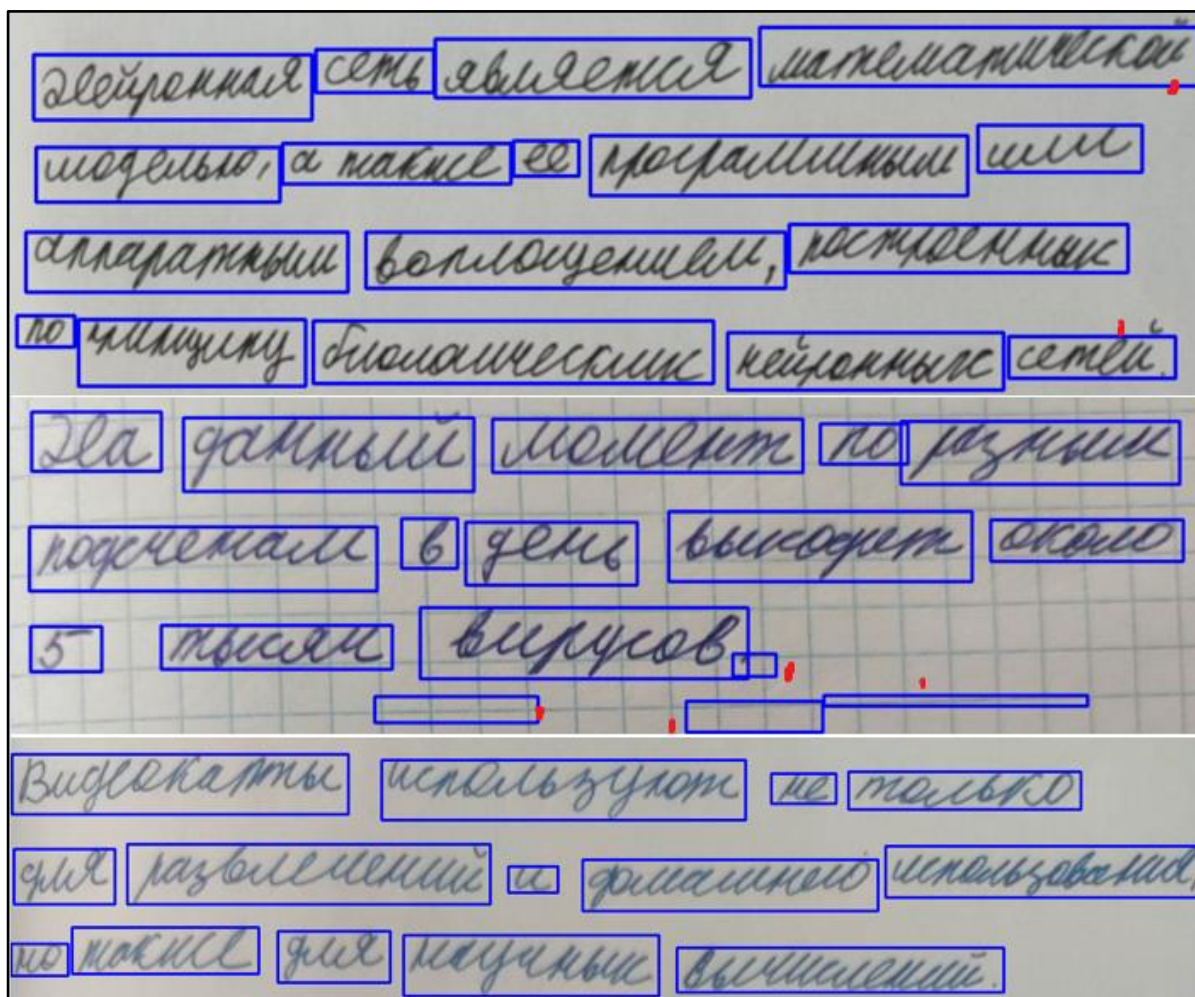 Нейронная сеть является математической
моделью, а также ее программным или
аппаратным воплощением, построенных
по принципу биологических нейронных сетей.
На данный момент по разным
подсчетам в день выходит около
5 тысяч вирусов.
Видеокарты используют не только
для развлечений и домашнего использования,
но также для научных вычислений.